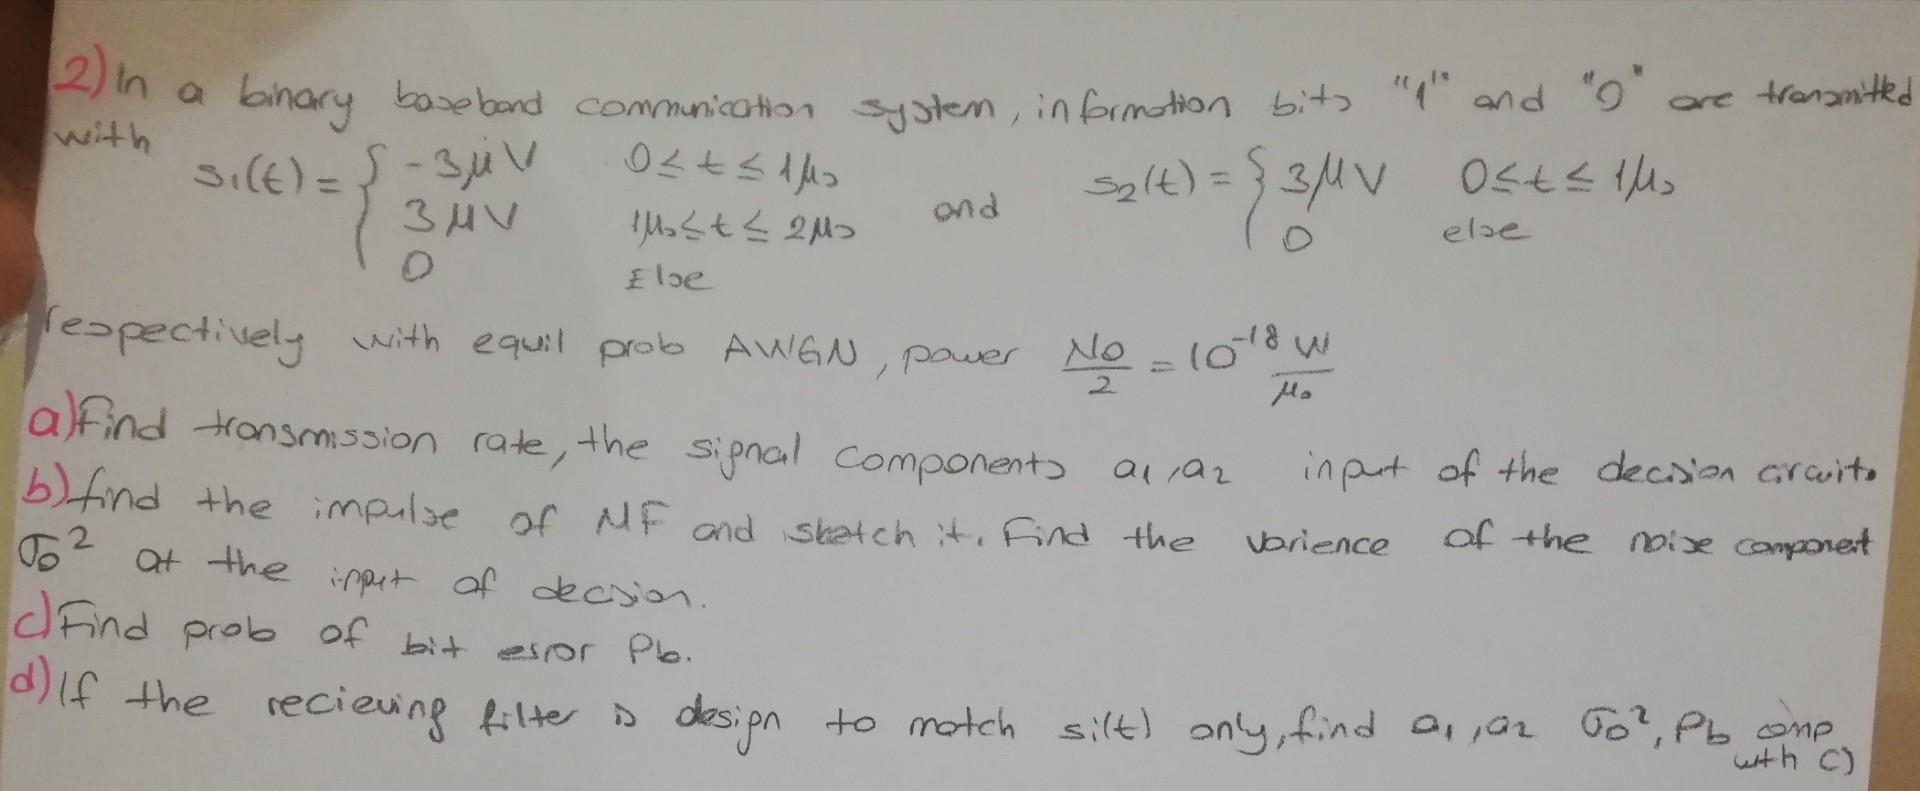 2) In a binary baseband communication system, information bits "1" and "0" are transmitted
with
s₁(t) = { -3μV 0≤t≤1μs and s₂(t) = { 3μV 0≤t≤1μs
3μV 1μs≤t≤2μs 0 else
0 Else
respectively with equil prob AWGN, power No/2 = 10⁻¹⁸ W/μs
a) Find transmission rate, the signal components a₁,a₂ input of the decision circuits
b) find the impulse of MF and sketch it. Find the varience of the noise component
σ₀² at the input of decsion.
c) Find prob of bit error Pb.
d) If the recieving filter is design to match s₁(t) only, find a₁,a₂ σ₀², Pb comp
wth c)